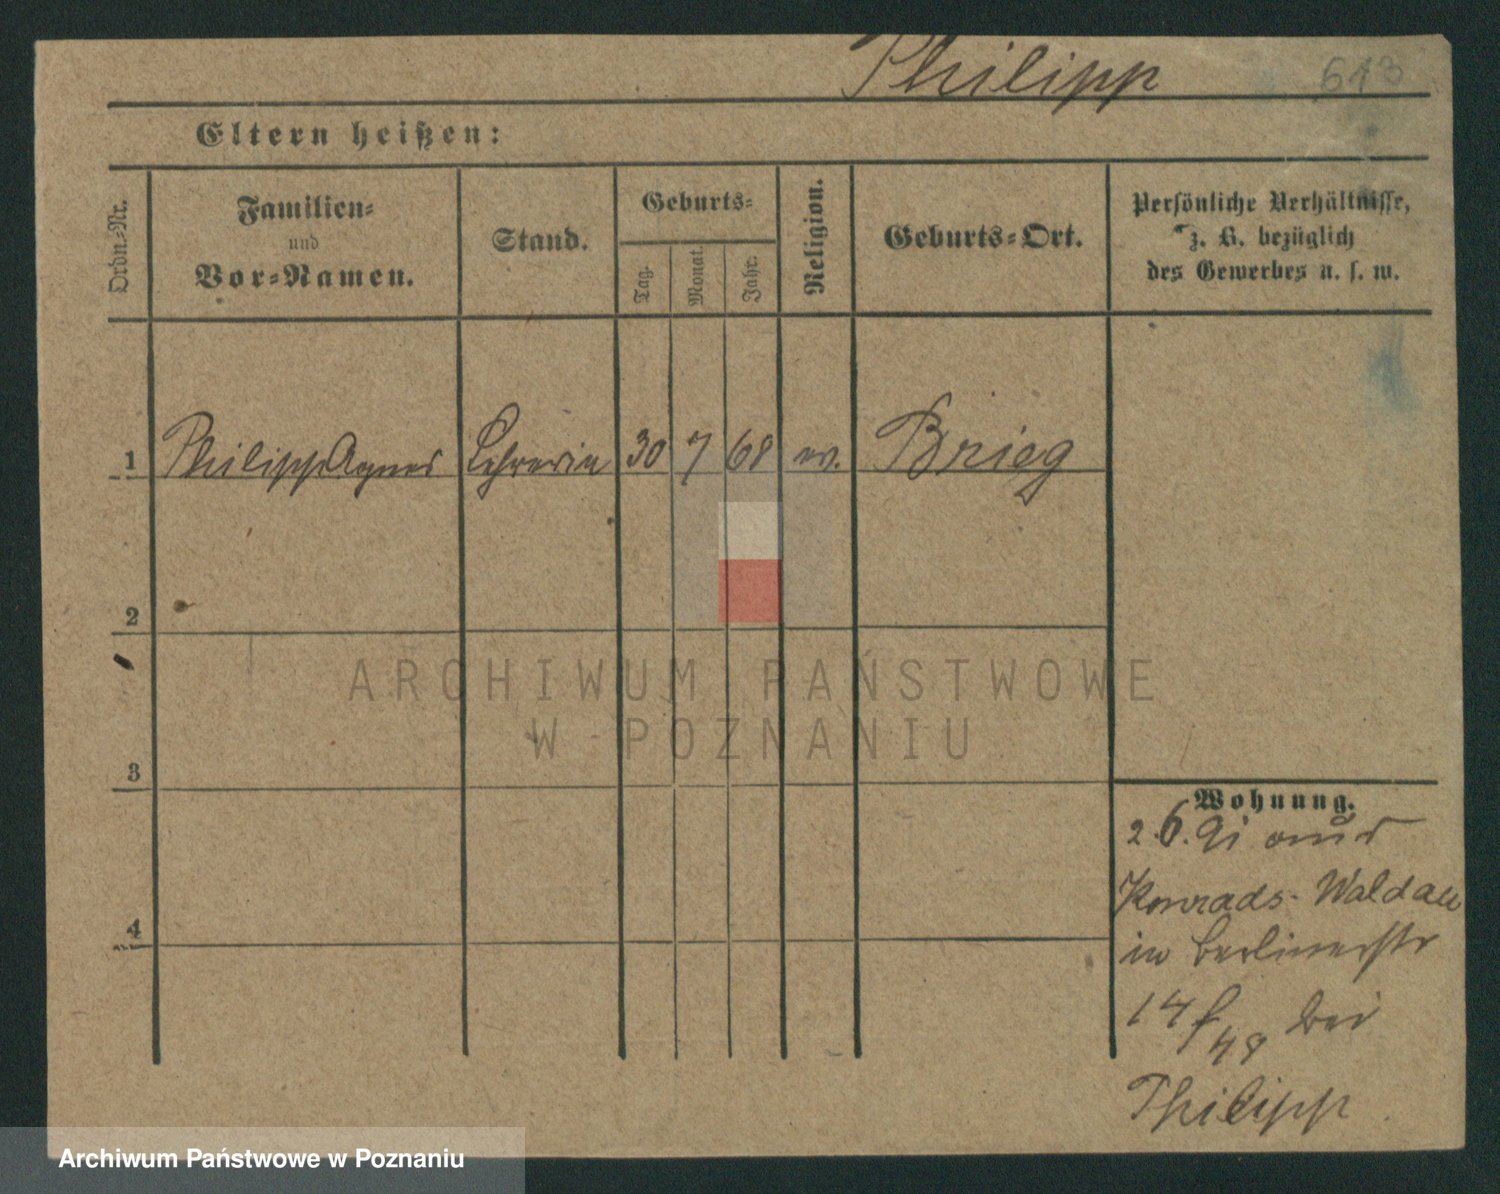 Philipp 613
Eltern heißen:
Ordn.-Nr.
Familien-
und
Vor-Namen.
Stand.
Geburts-
Tag.
Monat.
Jahr.
Religion.
Geburts-Ort.
Persönliche Verhältnisse,
z. B. bezüglich
des Gewerbes u. s. w.
1 Philipp Agnes Lehrerin 30 7 68 ev. Brieg
2
3
4
Wohnung.
2.6.91 aus
Konrads-Waldau
in Berlinerstr
14 f 48 bei
Philipp
ARCHIWUM PAŃSTWOWE
W POZNANIU
Archiwum Państwowe w Poznaniu